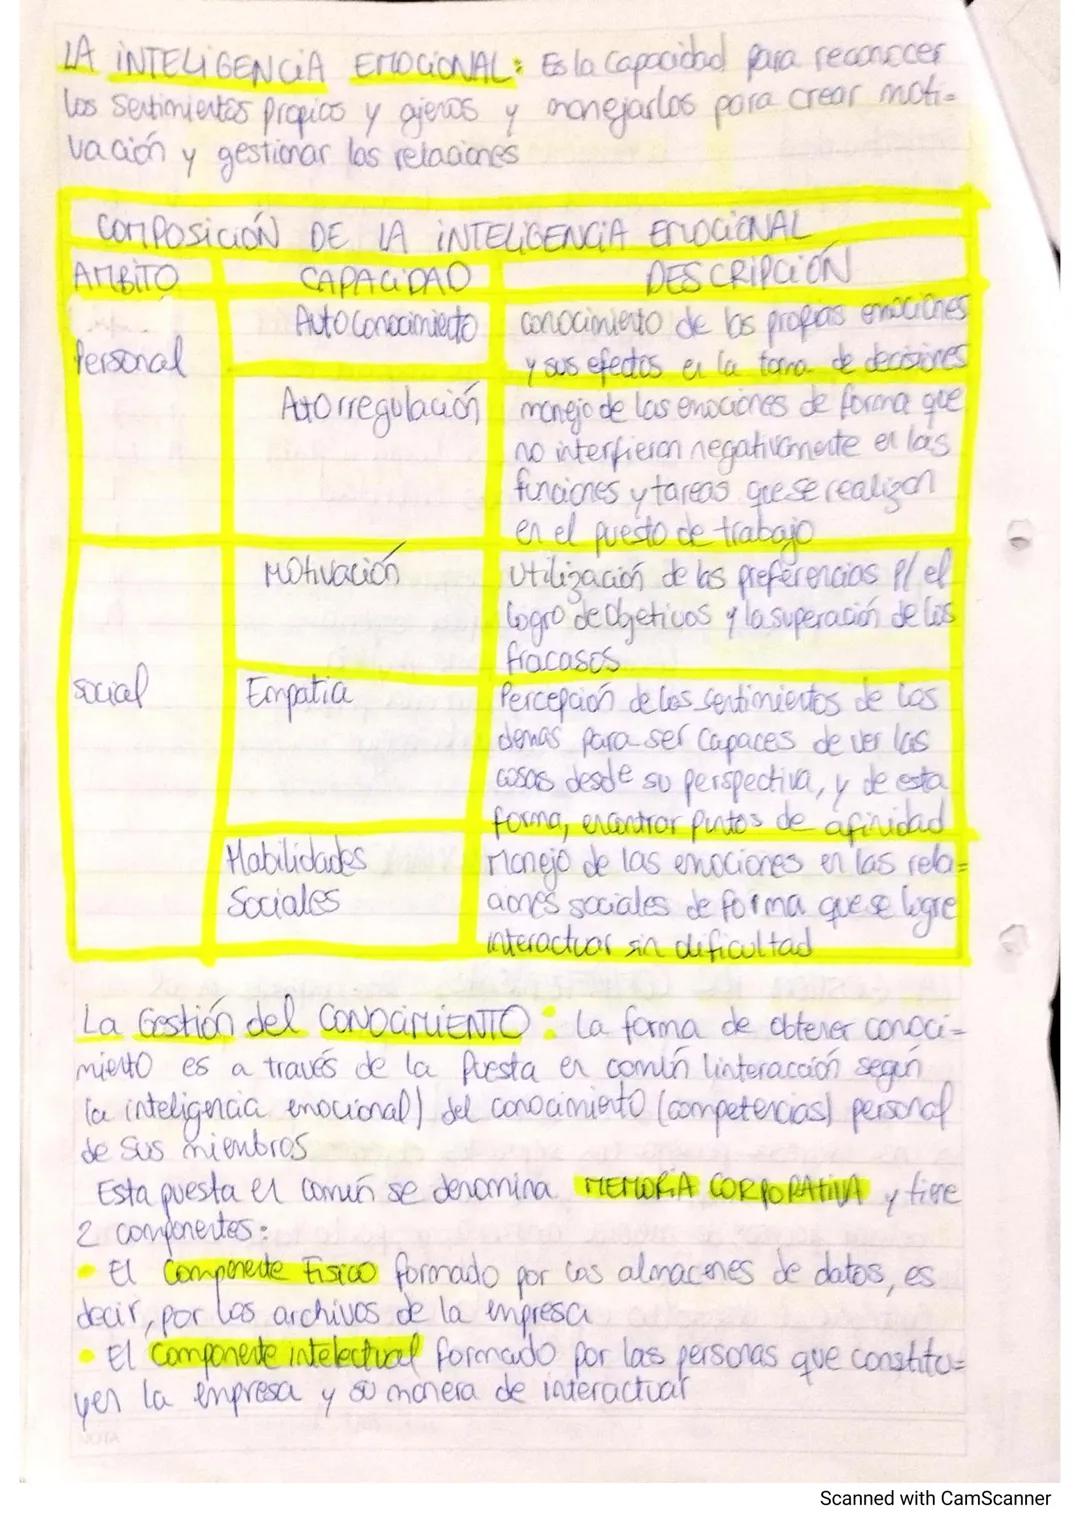 LA INTELIGENCIA EMOCIONAL: Es la capacidad para reconocer
los sentimientos propios y ajenos y manejarlos para crear moti-
vación y gestionar las relaciones
COMPOSICIÓN DE LA INTELIGENCIA EMOCIONAL
AMBITO CAPACIDAD DESCRIPCIÓN
Personal
Autoconocimiento
conocimiento de las propias emociones
y sus efectos en la toma de decisiones
Autorregulación
manejo de las emociones de forma que
no interfieran negativamente en las
funciones y tareas que se realizan
en el puesto de trabajo
social
Motivación
Utilización de las preferencias p/ el
logro de Objetivos y la superación de los
fracasos
Empatia
Percepción de los sentimientos de los
demás para ser capaces de ver las
cosas desde su perspectiva, y de esta
forma, encontrar puntos de afinidad
Habilidades
Sociales
Manejo de las emociones en las rela-
ciones sociales de forma que se logre
interactuar sin dificultad
La Gestión del CONOCIMIENTO: La forma de obtener conoci-
miento es a través de la Puesta en común (interacción según
la inteligencia emocional) del conocimiento (competencias) personal
de sus miembros
Esta puesta en común se denomina MEMORIA CORPORATIVA y tiene
2 componentes:
• El Componente Fisico formado por los almacenes de datos, es
decir, por los archivos de la empresa
• El componente intelectual formado por las personas que constitu-
yen la empresa y su manera de interactuar
Scanned with CamScanner